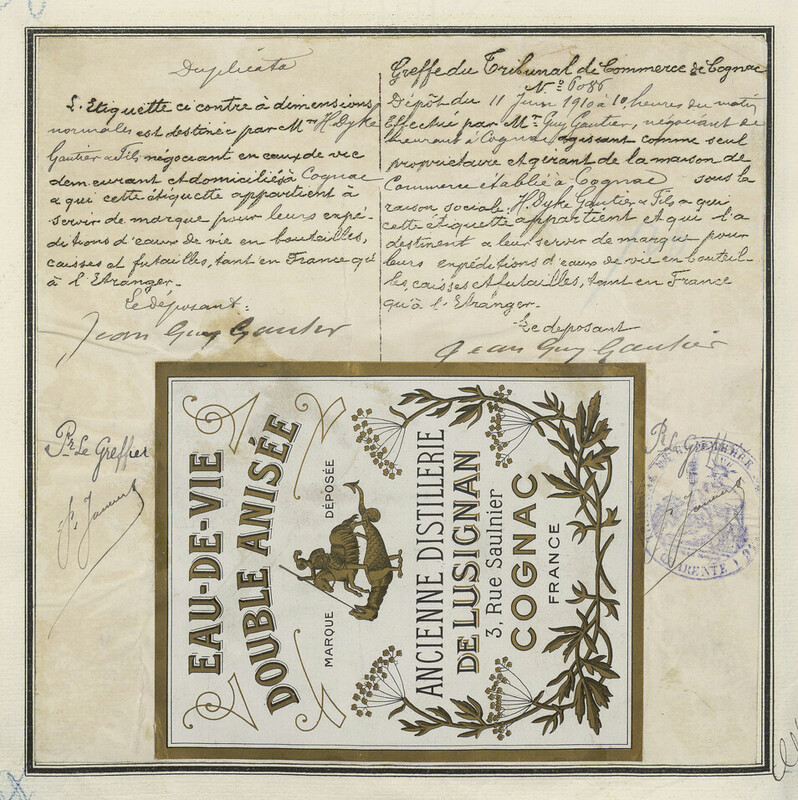 Duplicata
L'Etiquette ci contre à dimensions
normales est destinée par Mrs H. Dyke
Gautier & Fils négociant en eaux de vie
demeurant et domiciliés à Cognac
a qui cette étiquette appartient à
servir de marque pour leurs expé-
ditions d'eaux de vie en bouteilles,
caisses et futailles, tant en France qu'
à l'Etranger.
Le déposant:
Jean Guy Gautier
Pr. Le Greffier
Greffe du Tribunal de Commerce de Cognac
No 6086
Dépôt du 11 Juin 1910 à 10 heures du matin
Effectué par Mr Guy Gautier, négociant de
meurant à Cognac agissant comme seul
propriétaire et gérant de la maison de
Commerce établie à Cognac sous la
raison sociale: H. Dyke Gautier & Fils a qui
cette étiquette appartient et qui l'a
destinent a leur servir de marque pour
leurs expéditions d'eaux de vie en bouteil-
les, caisses et futailles, tant en France
qu'à l'Etranger.
Le deposant
Jean Guy Gautier
Pr. Le Greffier
CHARENTE
EAU-DE-VIE
DOUBLE ANISÉE
MARQUE DÉPOSÉE
ANCIENNE DISTILLERIE
DE LUSIGNAN
3, Rue Saulnier
COGNAC
FRANCE